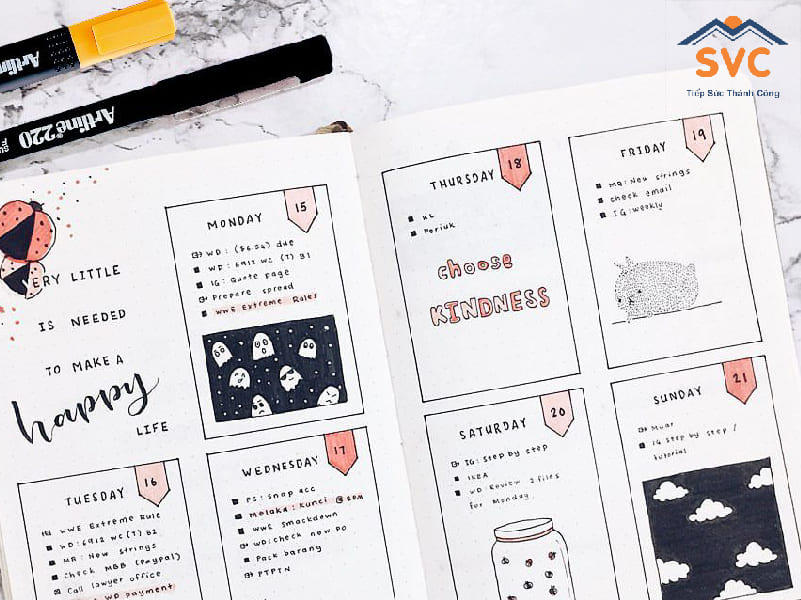 Artline
Artline 220
SVC
Tiếp Sức Thành Công
VERY LITTLE
IS NEEDED
TO MAKE A
happy
LIFE
MONDAY
15
WD: ($6.54) due
WD: 6912 WC (T) B1
IG: Quote page
Prepare spread
WWE Extreme Rules
TUESDAY
16
WWE Extreme Rule
WD: 6912 WC (T) B2
MA: New strings
Check MBB (Paypal)
Call lawyer office
WD payment
WEDNESDAY
17
PS: Snap acc
Melaka: Kunci @ com
WWE Smackdown
WD: check new PO
Pack barang
PTPTN
THURSDAY
18
KL
Periuk
choose
KINDNESS
FRIDAY
19
MA: New strings
check email
IG: weekly
SATURDAY
20
IG: Step by step
IKEA
WD: Review 2 files
for Monday
SUNDAY
21
Muar
IG step by step /
tutorial